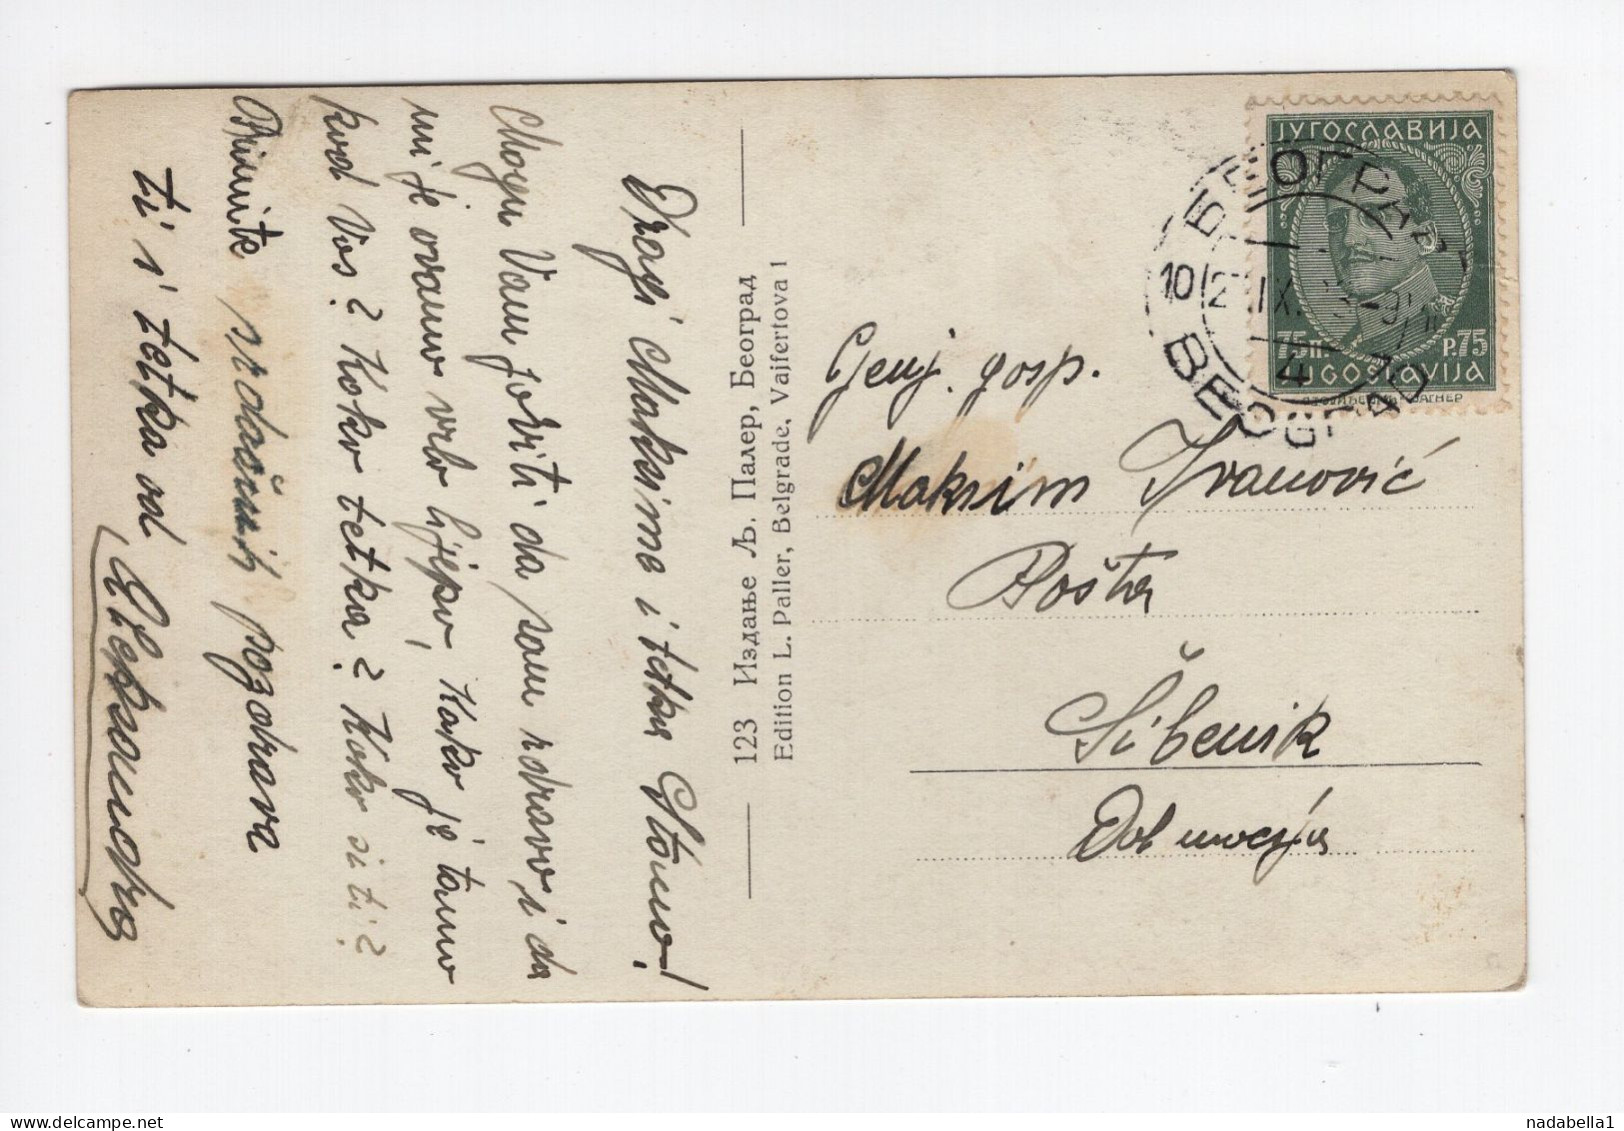 Dragi Maksime i tetka Stano!
Mogu Vam javiti da sam zdravo i da
mi je ovamo vrlo lijepo, Kako je tamo
kod Vas? Kako tetka? Kako si ti?
Primite srdačnih pozdrava
ti i tetka od Aleksandra
123 Издање Љ. Палер, Београд
Edition L. Paller, Belgrade, Vajfertova 1
ЈУГОСЛАВИЈА
75 П. P. 75
JUGOSLAVIJA
БЕОГРАД
10
IX.
4
BEOGRAD
gosp.
Maksim Ivanović
Pošta
Šibenik
Dalmacija
nadabella1